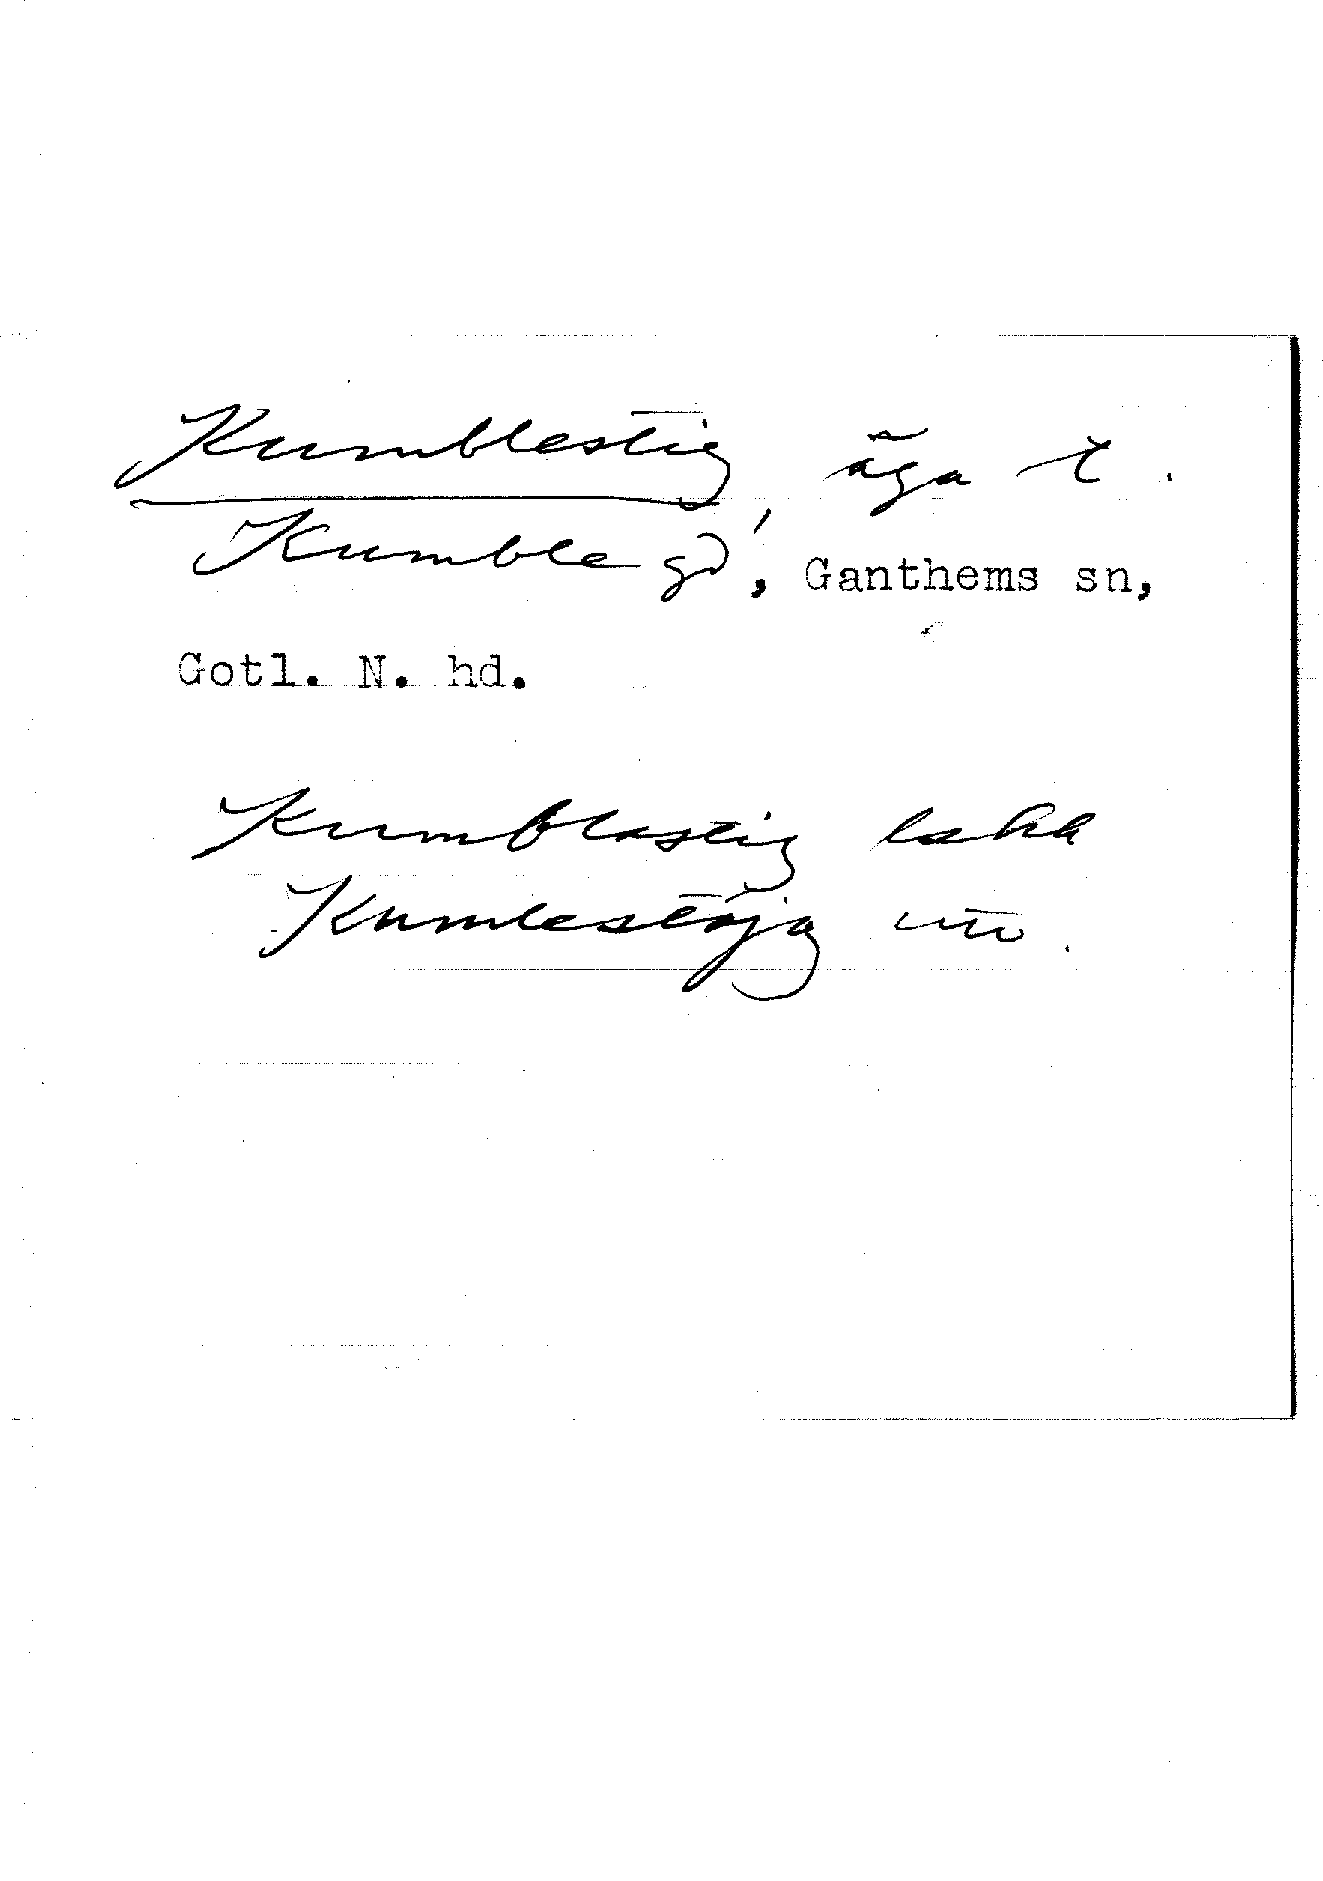 Kumblestig, äga t.
Kumble gd, Ganthems sn,
Gotl. N. hd.
Kumblastig lskk
Kumlestäjg uio.